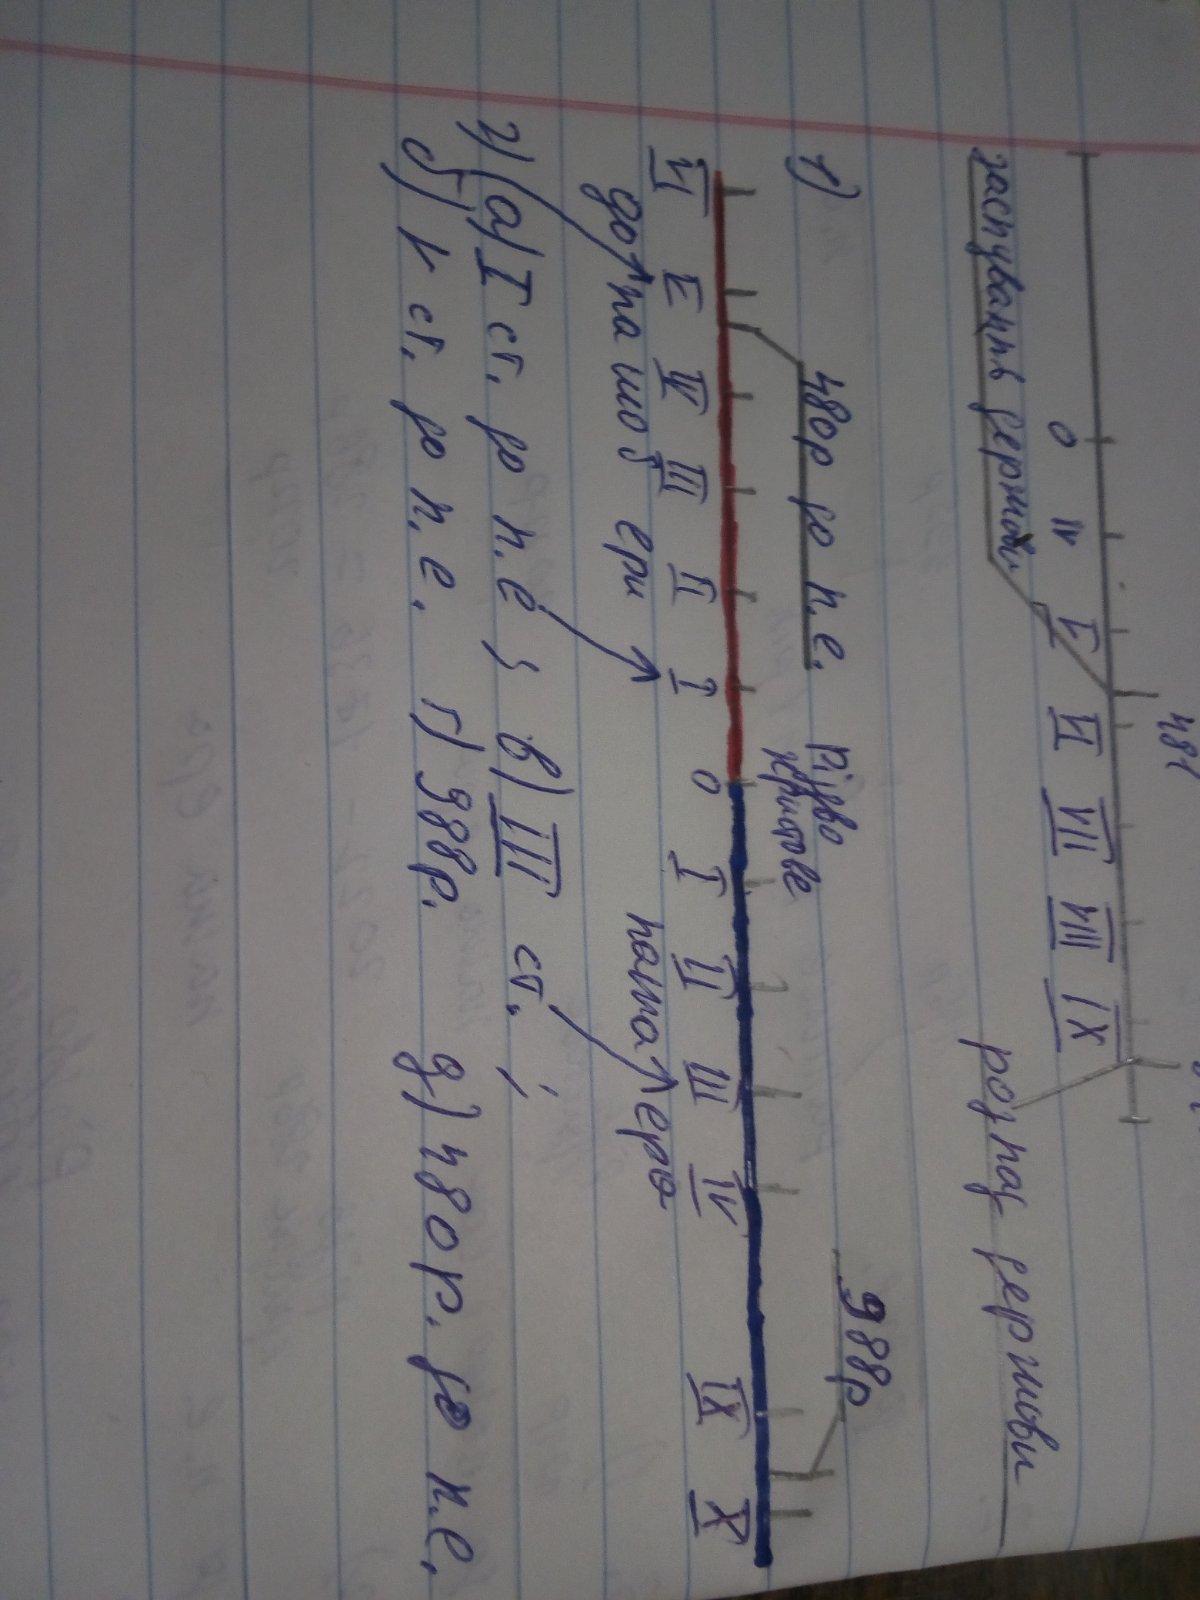 481
0 IV V VI VII VIII IX
заснування держави розпад держави
1) 480р до н.е. Різдво 988р
христове
VI V IV III II I 0 I II III IV IX X
до нашої ери наша ера
2) а) I ст. до н.е ; в) III ст. ;
б) V ст. до н.е. г) 988р. д) 480р. до н.е.